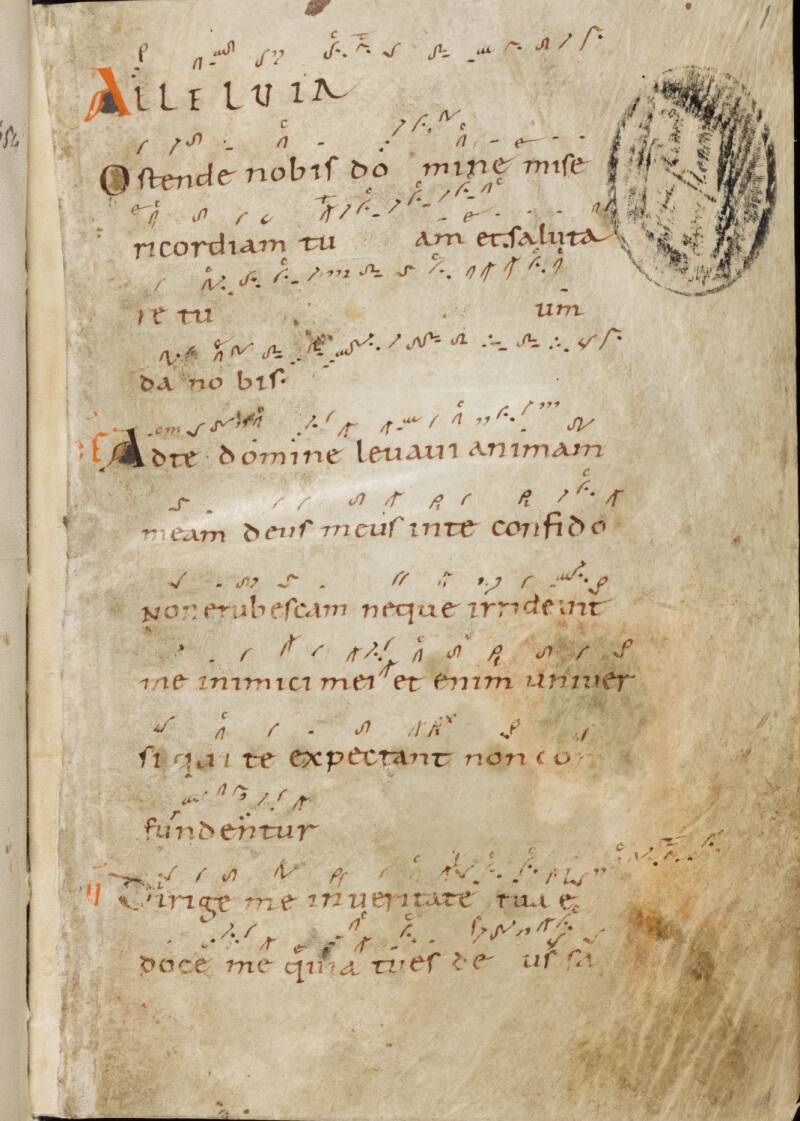 1
ALLELUIA
Ostende nobis do mine mise
ricordiam tu am et saluta
re tu um
da no bis.
Adte domine levavi animam
meam deus meus inte confido
non erubescam neque irrideant
me inimici mei et enim univer
si qui te expectant non con
fundentur
Dirige me inveritate tua et
doce me quia tues de us sa